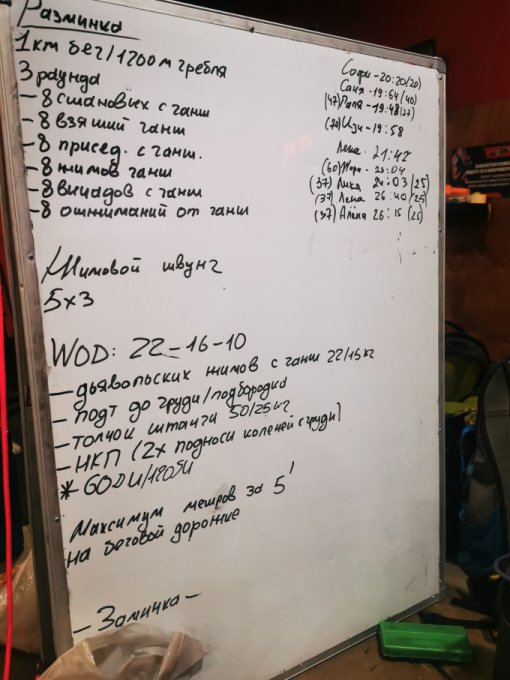 Разминка
1км бег/1200м гребля
3 раунда
-8 становых с ганш
-8 взятий ганш
-8 присед. с ганш.
-8 жимов ганш
-8 выпадов с ганш
-8 отжиманий от ганш
Жимовой швунг
5x3
WOD: 22-16-10
- дьявольских жимов с ганш 22/15кг
- подт до груди/подбородка
- толчок штанги 50/25кг
- НКП (2x подноси коленей с груди)
* 60DU/120SU
Максимум метров за 5'
на беговой дорожке
- Заминка -
Софи - 20:20(20)
Саня - 19:54(40)
(47) - 19:48(27)
(70) - 19:58
Лена - 21:42
(60)
(37) Лика 24:03(25)
(37) Лена 26:40(25)
(37) Алёна 26:15(25)